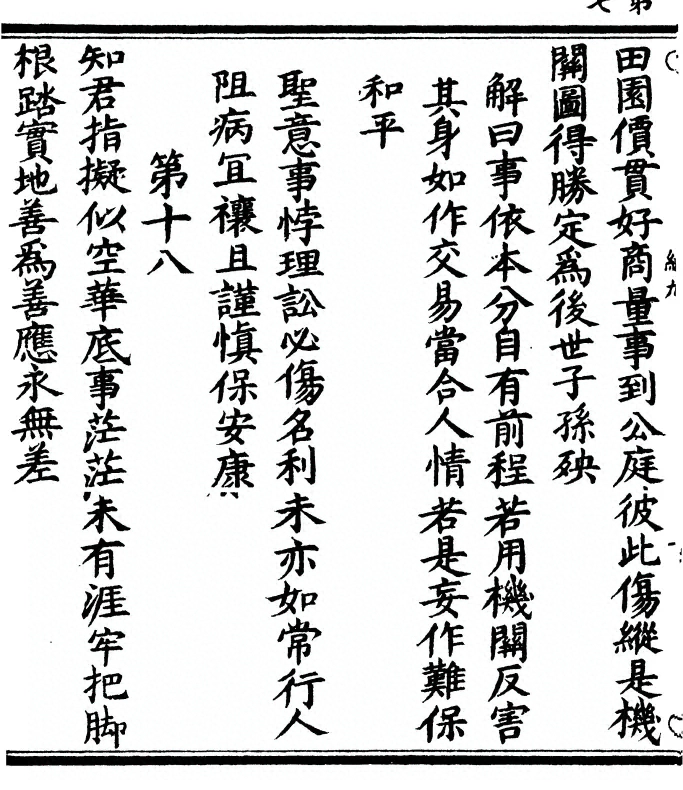 田園價貫好商量事到公庭彼此傷縱是機
關圖得勝定為後世子孫殃
解曰事依本分自有前程若用機關反害
其身如作交易當合人情若是妄作難保
和平
聖意事悖理訟必傷名利未亦如常行人
阻病宜禳且謹慎保安康
第十八
知君指擬似空華底事茫茫未有涯牢把脚
根踏實地善為善應永無差